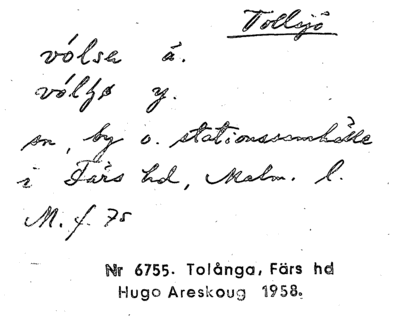 Tollsjö
vólse á.
vólfs y.
sn, by o. stationssamhälle
i Färs hd, Malm. l.
M. f. 75
Nr 6755. Tolånga, Färs hd
Hugo Areskoug 1958.